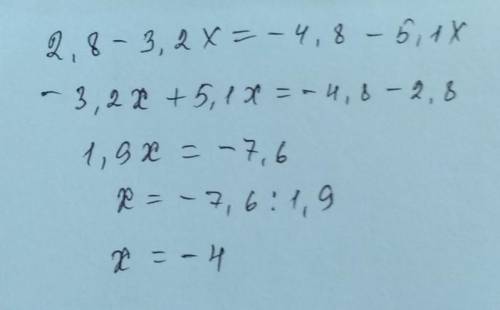 2,8 - 3,2x = -4,8 - 5,1x
- 3,2x + 5,1x = -4,8 - 2,8
1,9x = -7,6
x = -7,6 : 1,9
x = -4